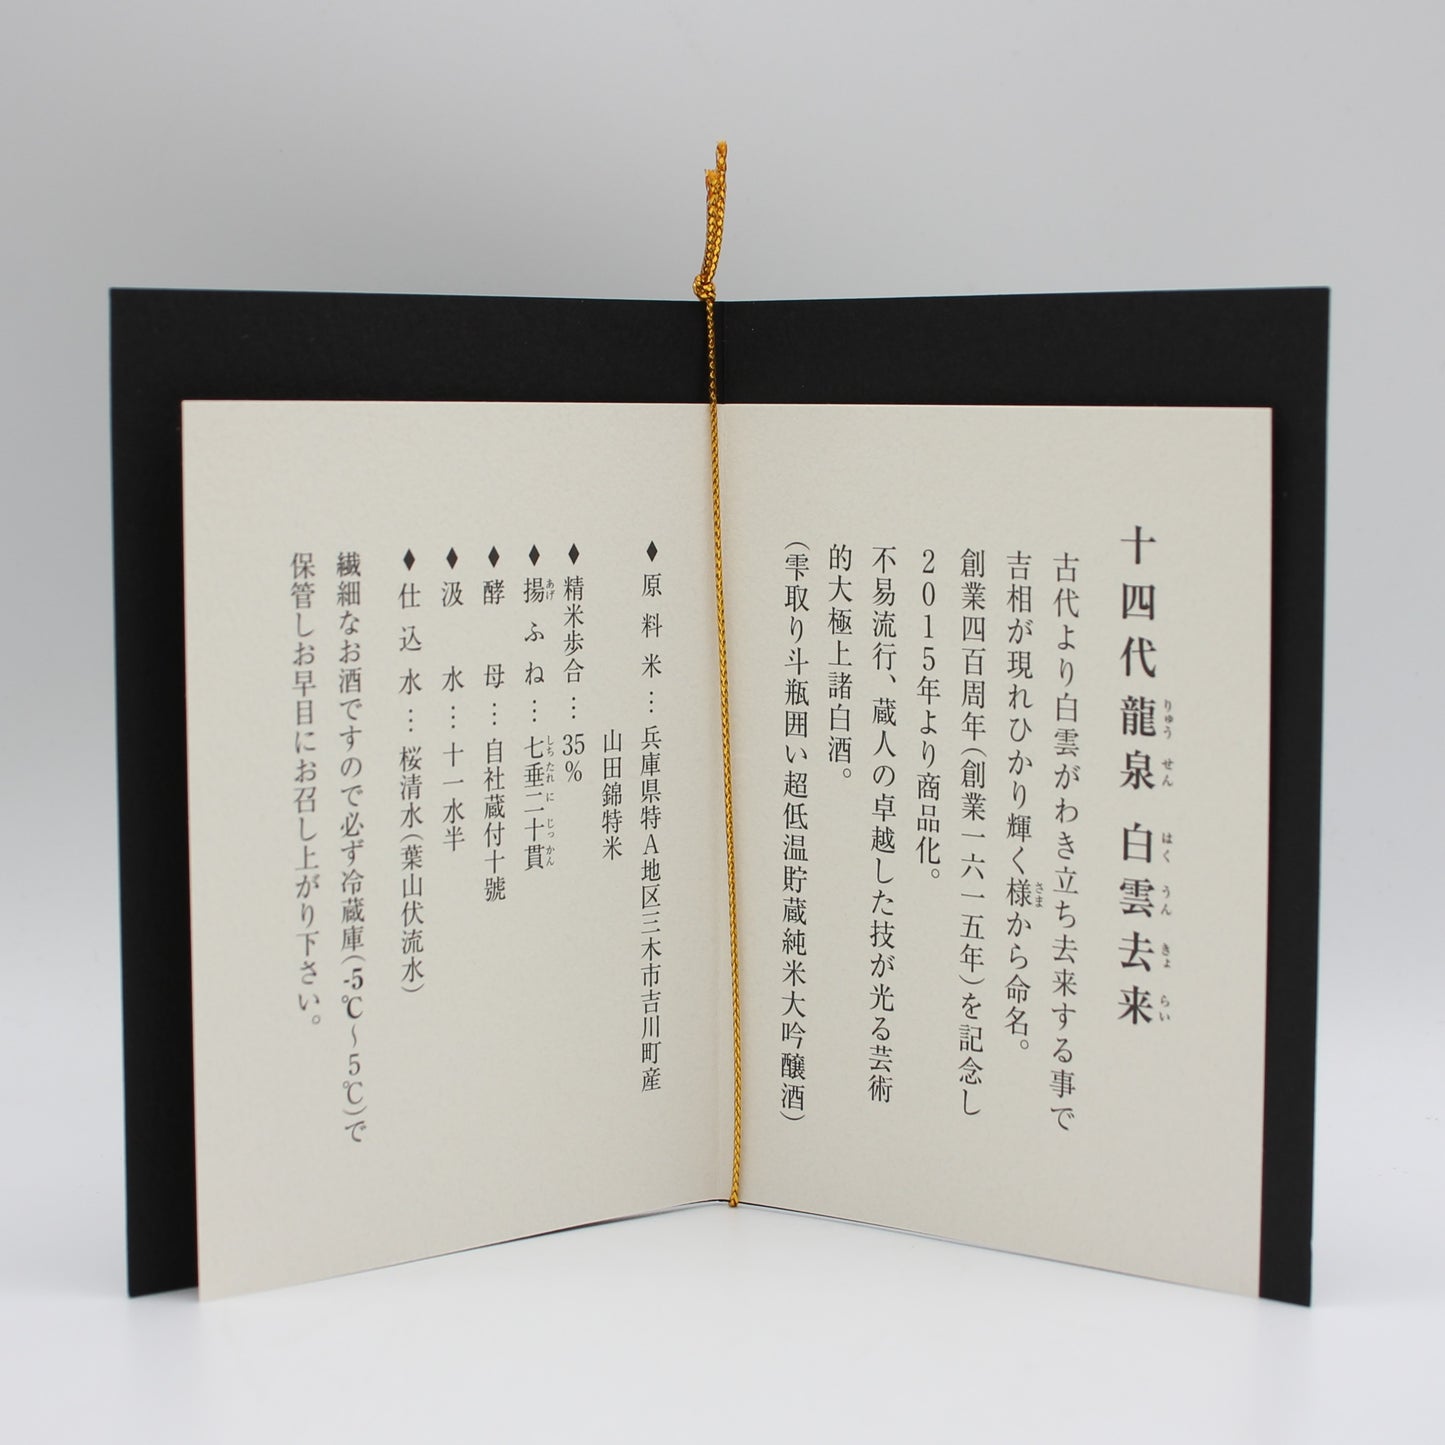 十四代 龍泉 白雲去来
りゅう せん はく うん きょ らい
古代より白雲がわき立ち去来する事で
吉相が現れひかり輝く様から命名。
さま
創業四百周年(創業一六一五年)を記念し
2015年より商品化。
不易流行、蔵人の卓越した技が光る芸術
的大極上諸白酒。
(雫取り斗瓶囲い超低温貯蔵純米大吟醸酒)
♦原料米…兵庫県特A地区三木市吉川町産
山田錦特米
♦精米歩合…35%
♦揚ふね…七垂二十貫
あげ しちたれ に じっ かん
♦酵母…自社蔵付十號
♦汲水…十一水半
♦仕込水…桜清水(葉山伏流水)
繊細なお酒ですので必ず冷蔵庫(-5℃~5℃)で
保管しお早目にお召し上がり下さい。